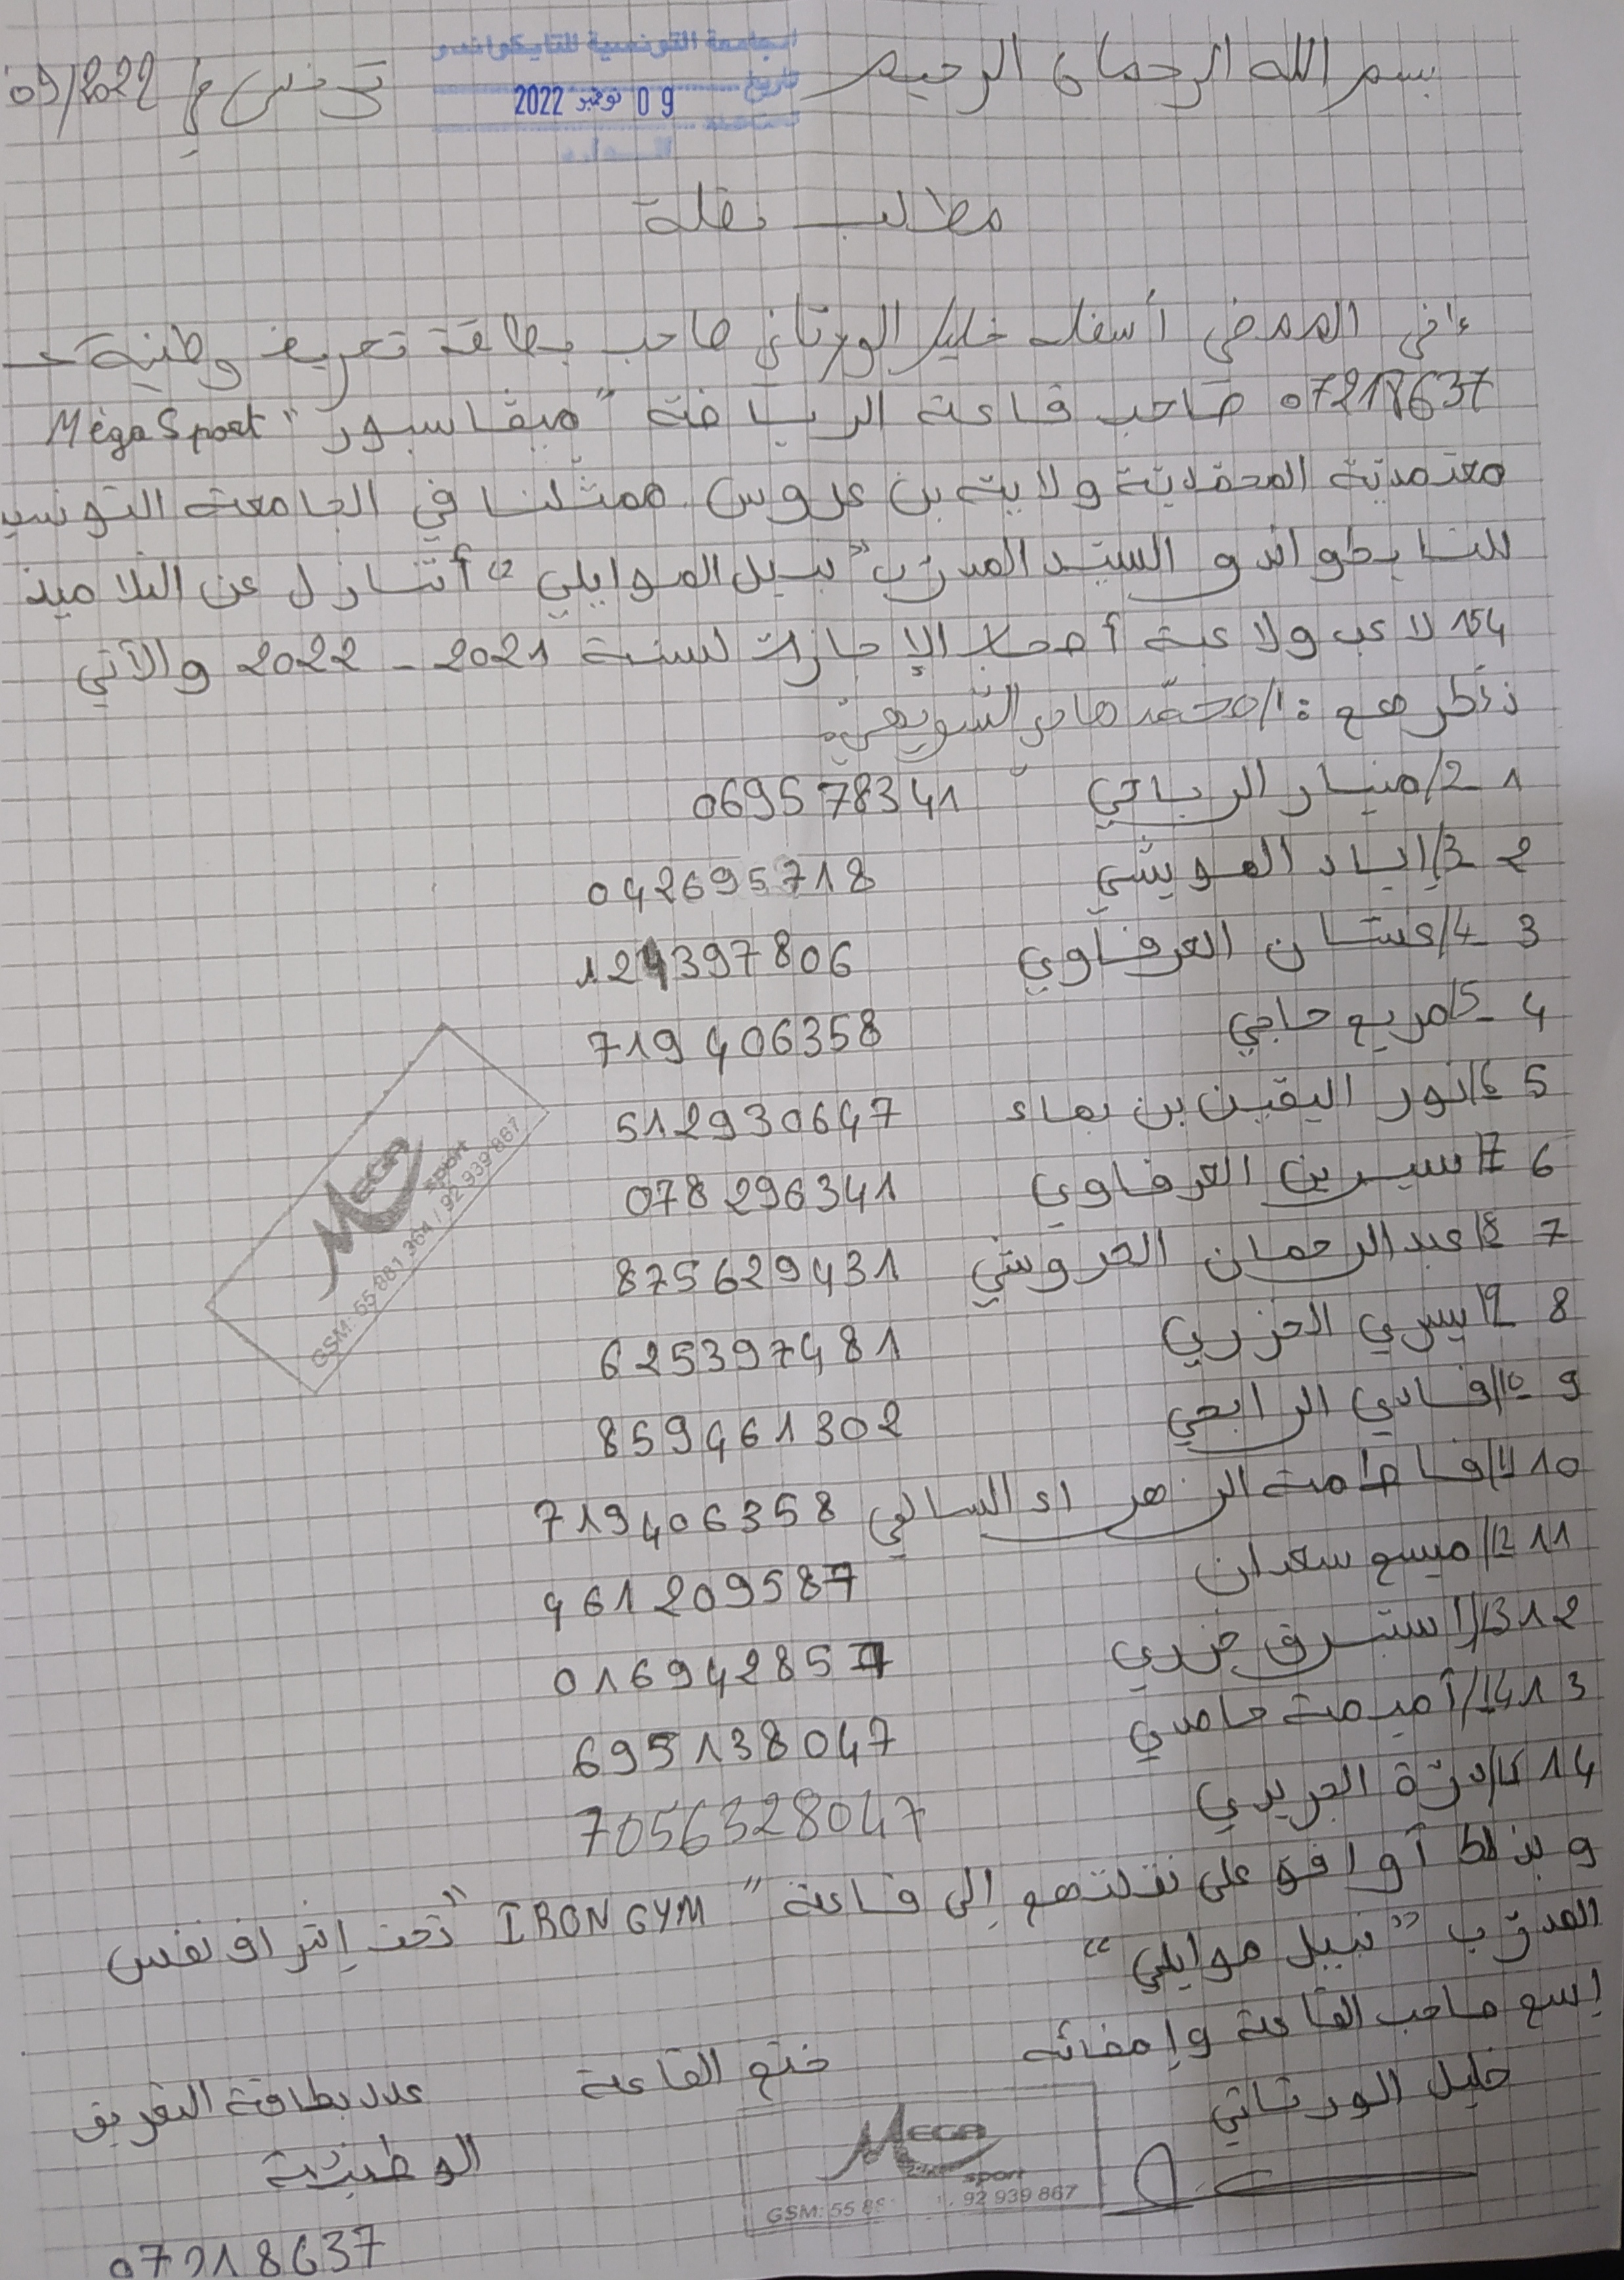 بسم الله الرحمان الرحيم
الجامعة التونسية للتايكواندو
تاريخ
09 نوفمبر 2022
تونس في 09/2022
مطالب نقلة
إني الممضي أسفله خليل الورتاني صاحب بطاقة تعريف وطنية
07218637 صاحب قاعة الرياضة "ميقاسبور" Méga Sport
معتمدية المحمّدية ولاية بن عروس ممثّلنا في الجامعة التونسية
للتايكواندو السيّد المدرّب "نبيل الموايلي" أتنازل عن التلاميذ
154 لاعب ولاعبة أصحاب الإجازات لسنة 2021 - 2022 والآتي
ذكرهم : 1/ محمّد هادي الشويهي
1 2/ ميار الرباحي 069578341
2 3/ إياد العويشي 042695718
3 4/ غسّان العرفاوي 124397806
4 5/ مريم حاجي 719406358
5 6/ نور اليقين بن بهاء 512930647
6 7/ سيرين العرفاوي 078296341
7 8/ عبد الرحمان الحروشي 875629431
8 9/ يسري الخزري 625397481
9 10/ فادي الرابحي 859461302
10 11/ فاطمة الزهراء السالمي 719406358
11 12/ ميسم سعدان 461209587
12 13/ إستبرق خزري 016942857
13 14/ أميمة حامدي 695138047
14 15/ درّة الجريدي 7056328047
وبذلك أوافق على نقلتهم إلى قاعة "IRON GYM" تحت إشراف نفس
المدرّب "نبيل موايلي"
إسم صاحب القاعة وإمضائه
خليل الورتاني
ختم القاعة
عدد بطاقة التعريف
الوطنيّة
07218637
MEGA
sport
GSM: 55 881 364 / 92 939 867
MEGA
sport
GSM: 55 88 92 939 867